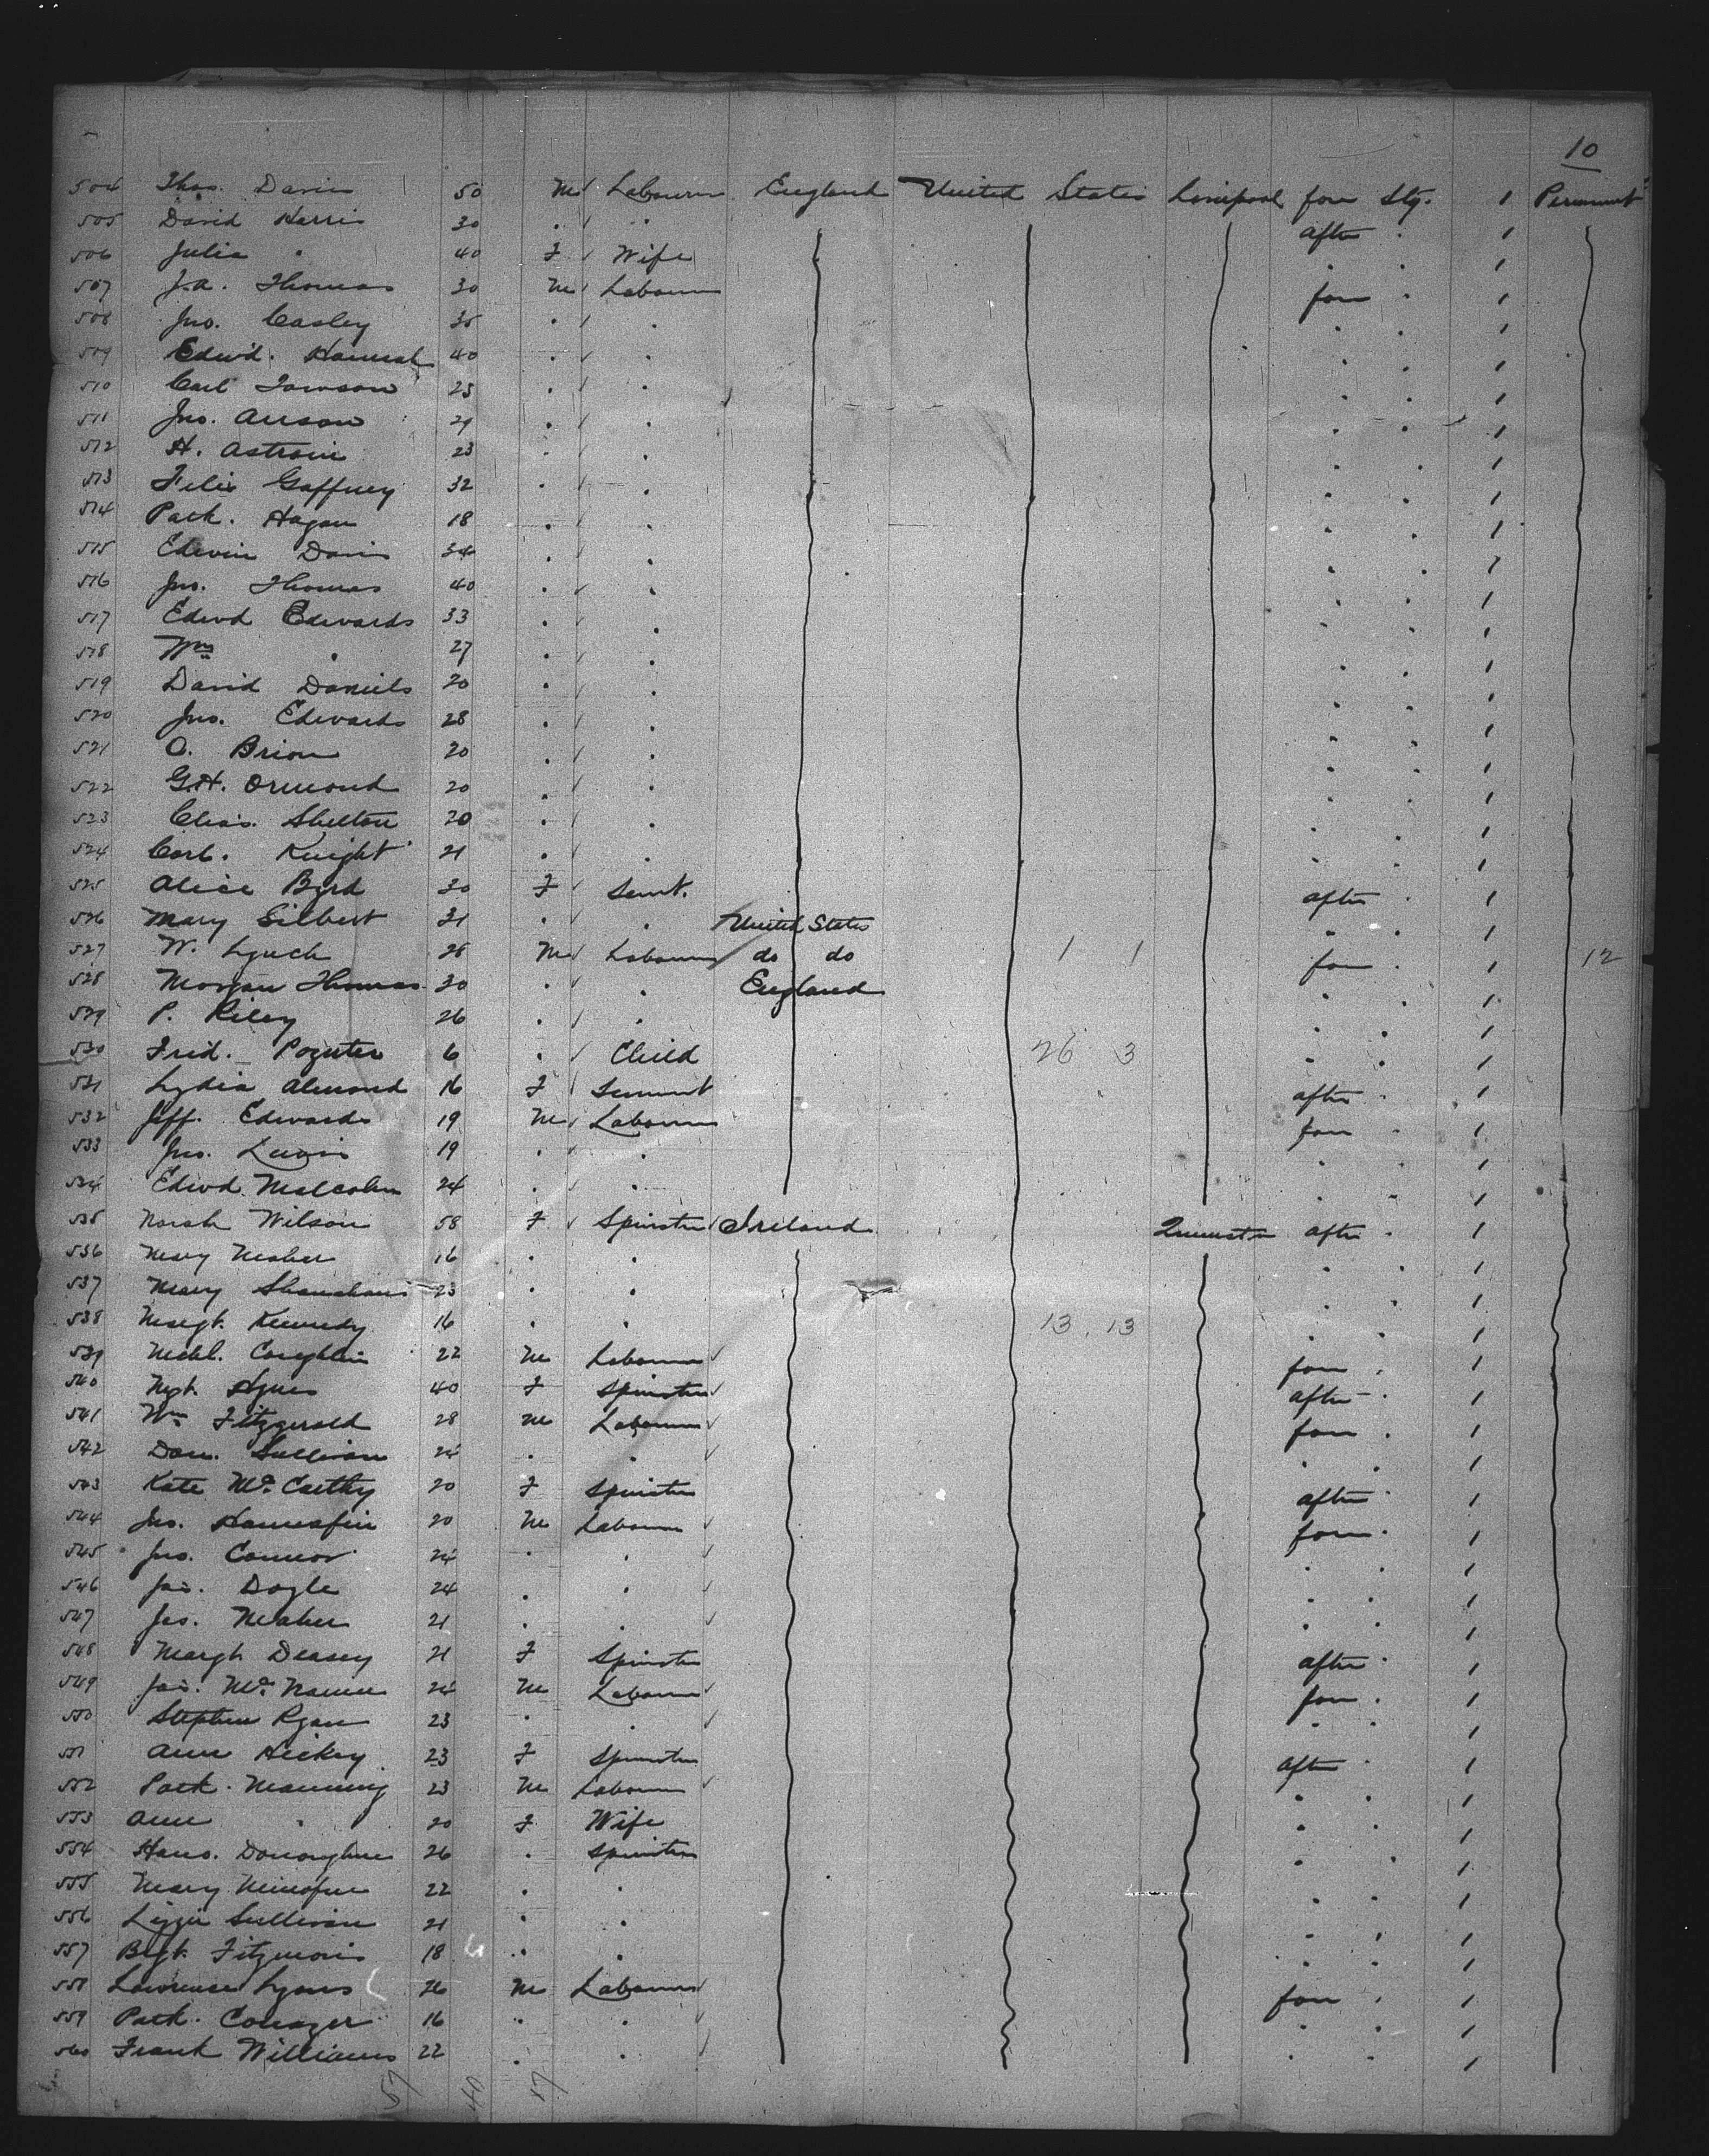 10
504 Thos. Davis 50 M Labourer England United States Liverpool fore Stg. 1 Permanent
505 David Harris 30 . . after . 1
506 Julia " 40 F Wife . . 1
507 J.A. Thomas 30 M Labourer fore . 1
508 Jno. Casley 35 . . . . 1
509 Edwd. Hannah 40 . . . . 1
510 Carl 23 . . . . 1
511 Jno. 21 . . . . 1
512 H. Astrom 23 . . . . 1
513 Felix Gaffney 32 . . . . 1
514 Patk. Hagan 18 . . . . 1
515 Edwin Davis 34 . . . . 1
516 Jno. Thomas 40 . . . . 1
517 Edwd Edwards 33 . . . . 1
518 Wm " 27 . . . . 1
519 David Daniels 20 . . . . 1
520 Jno. Edwards 28 . . . . 1
521 Brion 20 . . . . 1
522 G.H. Ormond 20 . . . . 1
523 Chas. Shelton 20 . . . . 1
524 Knight 21 . . . . 1
525 Alice Byrd 30 F Servt. after . 1
526 Mary Gilbert 31 . . United States . . 1
527 W. Lynch 28 M Labourer do do 1 1 fore . 1 12
528 Morgan Thomas 30 . . England . . 1
529 P. Riley 26 . . . . 1
530 Fred. Poynter 6 . Child 26 3 . . 1
531 Lydia Almond 16 F Servant after . 1
532 Jeff. Edwards 19 M Labourer fore . 1
533 Jno. Lewis 19 . . . . 1
534 Edwd. Malcolm 24 . . . . 1
535 Norah Wilson 58 F Spinster Ireland Queenstn after . 1
536 Mary Meaher 16 . . . . 1
537 Mary Shanahan 23 . . . . 1
538 Margt. Kennedy 16 . . 13 . 13 . . 1
539 Michl. Coughlin 22 M Labourer fore . 1
540 40 F Spinster after . 1
541 Wm Fitzgerald 28 M Labourer fore . 1
542 Dan. Sullivan 24 . . . . 1
543 Kate McCarthy 20 F Spinster after . 1
544 Jno. Hannafin 20 M Labourer fore . 1
545 Jno. Connor 24 . . . . 1
546 Jas. Doyle 24 . . . . 1
547 Jas. Meaher 21 . . . . 1
548 Margt. Deasey 21 F Spinster after . 1
549 Jas. McNamee 24 M Labourer fore . 1
550 Stephen Ryan 23 . . . . 1
551 Ann Hickey 23 F Spinster after . 1
552 Patk. Manning 23 M Labourer . . 1
553 Ann " 20 F Wife . . 1
554 Donoghue 26 . Spinster . . 1
555 Mary 22 . . . . 1
556 Lizzie Sullivan 21 . . . . 1
557 Bgt. Fitzmoris 18 . . . . 1
558 Lawrence Lyons 26 M Labourer fore . 1
559 Patk. 16 . . . . 1
560 Frank Williams 22 . . . . 1
57 40 17